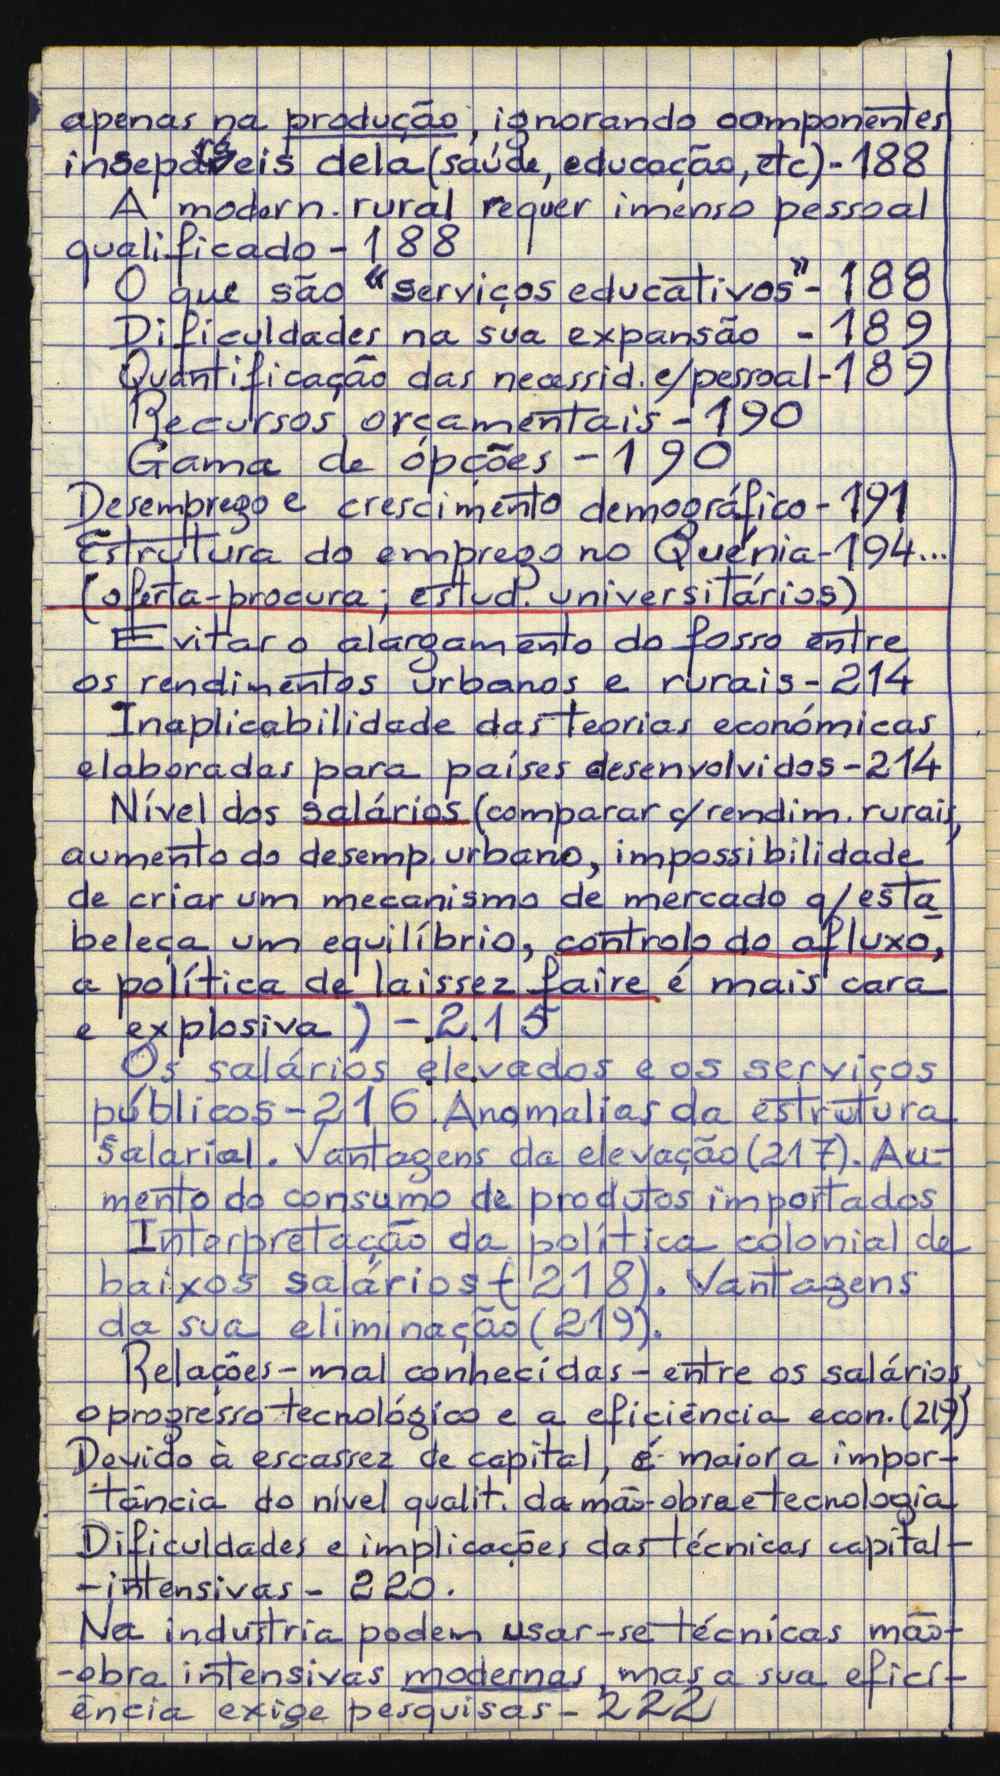 apenas na produção, ignorando componentes
inseparáveis dela (saúde, educação, etc) - 188
A modern. rural requer imenso pessoal
qualificado - 188
O que são "serviços educativos" - 188
Dificuldades na sua expansão - 189
Quantificação das necessid. e/pessoal - 189
Recursos orçamentais - 190
Gama de ópções - 190
Desemprego e crescimento demográfico - 191
Estrutura do emprego no Quénia - 194...
(oferta-procura; estud. universitários)
Evitar o alargamento do fosso entre
os rendimentos urbanos e rurais - 214
Inaplicabilidade das teorias económicas
elaboradas para países desenvolvidos - 214
Nível dos salários (comparar c/rendim. rurais,
aumento do desemp. urbano, impossibilidade
de criar um mecanismo de mercado q/esta
beleça um equilíbrio, controlo do afluxo,
a política de laissez faire é mais cara
e explosiva) - 215
Os salários elevados e os serviços
públicos - 216. Anomalias da estrutura
salarial. Vantagens da elevação (217). Au-
mento do consumo de produtos importados
Interpretação da política colonial de
baixos salários (218). Vantagens
da sua eliminação (219).
Relações - mal conhecidas - entre os salários,
o progresso tecnológico e a eficiência econ. (219)
Devido à escassez de capital, é maior a impor-
tância do nível qualit. da mão-obra e tecnologia
Dificuldades e implicações das técnicas capital-
-intensivas - 220.
Na industria podem usar-se técnicas mão-
-obra intensivas modernas, mas a sua efici-
ência exige pesquisas - 222